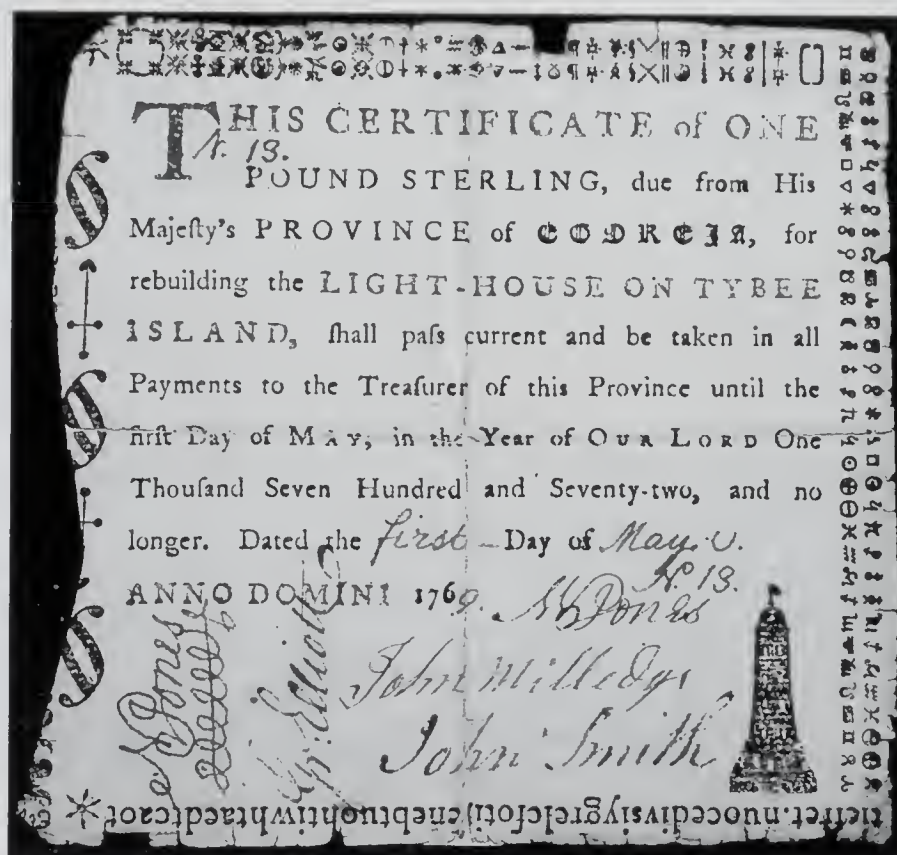 THIS CERTIFICATE of ONE
N. 13.
POUND STERLING, due from His
Majeſty's PROVINCE of GEORGIA, for
rebuilding the LIGHT-HOUSE ON TYBEE
ISLAND, ſhall paſs current and be taken in all
Payments to the Treaſurer of this Province until the
firſt Day of MAY, in the Year of OUR LORD One
Thouſand Seven Hundred and Seventy-two, and no
longer. Dated the first Day of May.
N. 13.
ANNO DOMINI 1769.
N W Jones
John Milledge
John Smith
Jones
Gr. Elliott